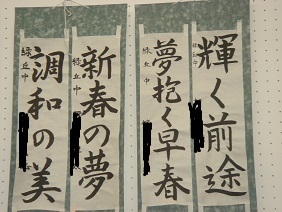 輝く前途
緑丘中
夢抱く早春
緑丘中
新春の夢
緑丘中
調和の美
緑丘中